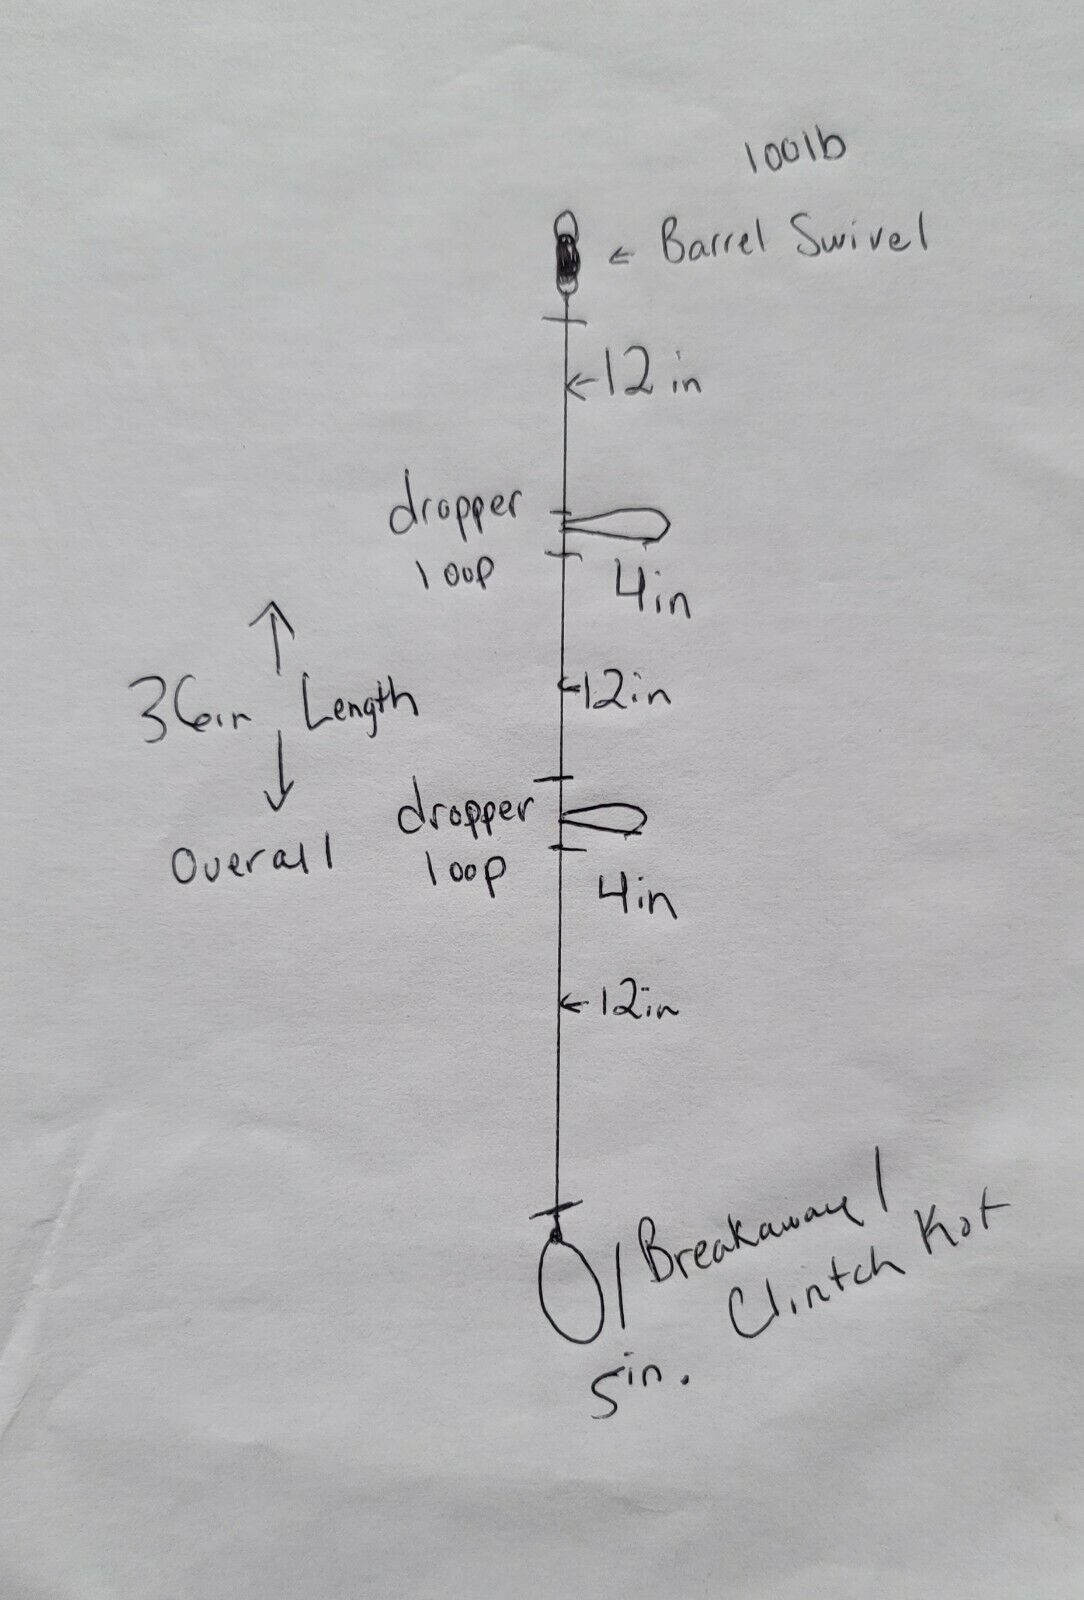 100lb
← Barrel Swivel
←12 in
dropper
loop
4in
←12in
36in Length
Overall
dropper
loop
4in
←12in
Breakaway/
Clintch Kot
5in.